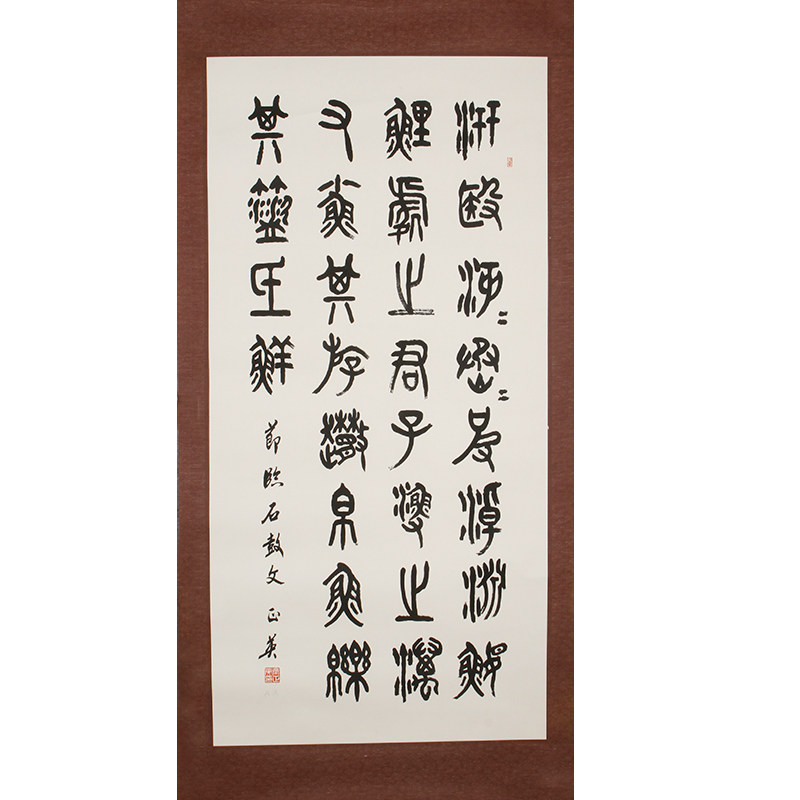 汧殹沔=丞=皮淖淵鰋
鯉處之君子漁之澫
又小魚其斿帛魚皪
其盜氐鮮 節臨石鼓文 正英